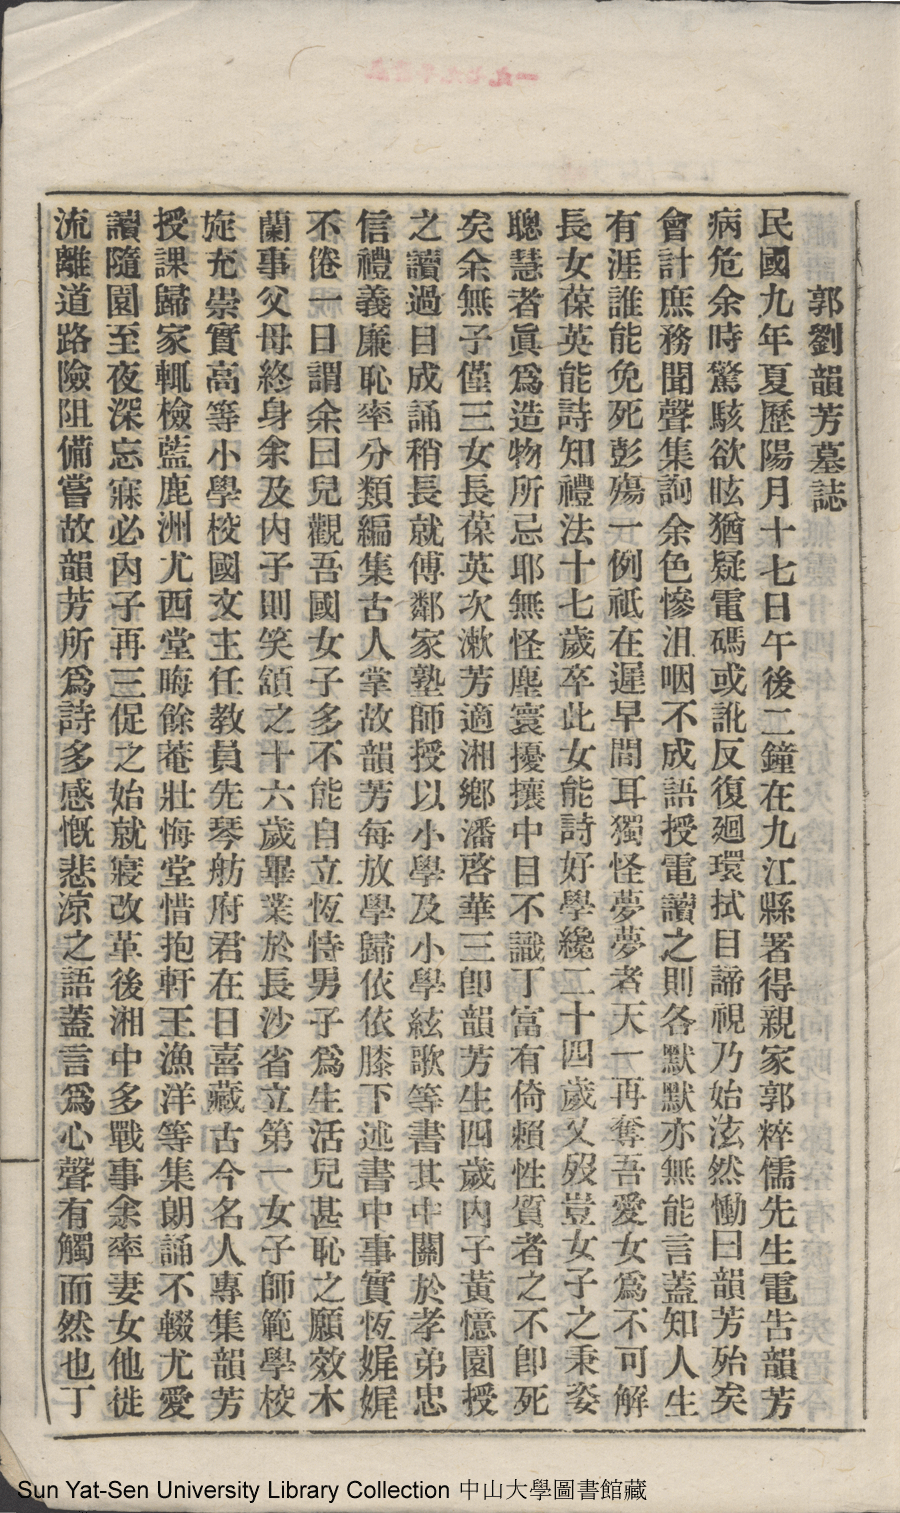 郭劉韻芳墓誌
民國九年夏歷陽月十七日午後二鐘在九江縣署得親家郭粹儒先生電告韻芳
病危余時驚駭欲眩猶疑電碼或訛反復廻環拭目諦視乃始泫然慟曰韻芳殆矣
會計庶務聞聲集詢余色慘沮咽不成語授電讀之則各默默亦無能言蓋知人生
有涯誰能免死彭殤一例祇在遲早間耳獨怪夢夢者天一再奪吾愛女為不可解
長女葆英能詩知禮法十七歲卒此女能詩好學纔二十四歲又歿豈女子之秉姿
聰慧者眞為造物所忌耶無怪塵寰擾攘中目不識丁富有倚賴性質者之不卽死
矣余無子僅三女長葆英次漱芳適湘鄉潘啓華三卽韻芳生四歲內子黃憶園授
之讀過目成誦稍長就傅鄰家塾師授以小學及小學絃歌等書其中關於孝弟忠
信禮義廉恥率分類編集古人掌故韻芳每放學歸依依膝下述書中事實恆娓娓
不倦一日謂余曰兒觀吾國女子多不能自立恆恃男子為生活兒甚恥之願效木
蘭事父母終身余及內子則笑頷之十六歲畢業於長沙省立第一女子師範學校
旋充崇實高等小學校國文主任教員先琴舫府君在日喜藏古今名人專集韻芳
授課歸家輒檢藍鹿洲尤西堂晦餘菴壯悔堂惜抱軒王漁洋等集朗誦不輟尤愛
讀隨園至夜深忘寐必內子再三促之始就寢改革後湘中多戰事余率妻女他徙
流離道路險阻備嘗故韻芳所為詩多感慨悲涼之語蓋言為心聲有觸而然也丁
Sun Yat-Sen University Library Collection 中山大學圖書館藏